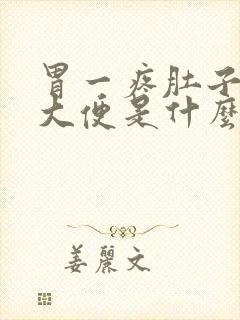 胃一疼肚子
大便是什麼
姜麗文